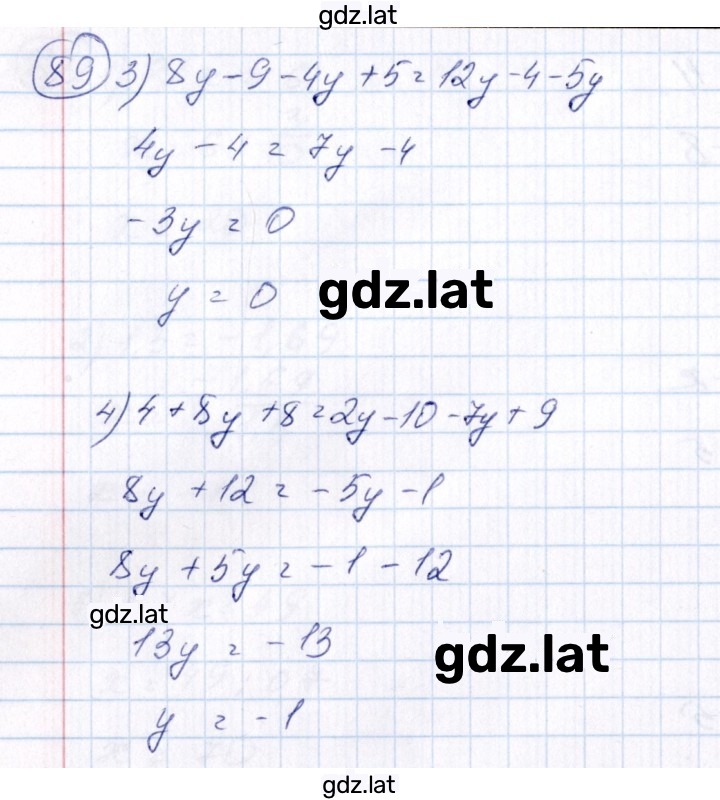 gdz.lat
89 3) 8y - 9 - 4y + 5 = 12y - 4 - 5y
4y - 4 = 7y - 4
-3y = 0
y = 0
gdz.lat
4) 4 + 8y + 8 = 2y - 10 - 7y + 9
8y + 12 = -5y - 1
8y + 5y = -1 - 12
gdz.lat
13y = -13
gdz.lat
y = -1
gdz.lat